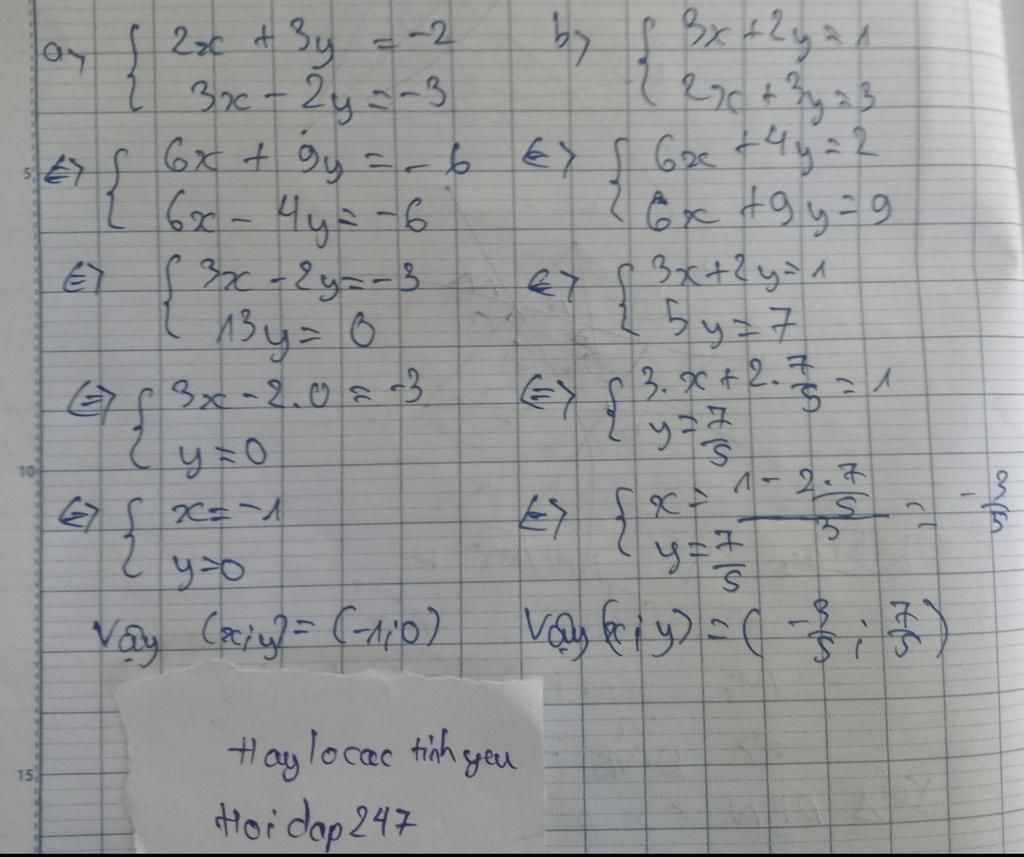 a, { 2x + 3y = -2
3x - 2y = -3
<=> { 6x + 9y = -6
6x - 4y = -6
<=> { 3x - 2y = -3
13y = 0
<=> { 3x - 2.0 = -3
y = 0
<=> { x = -1
y = 0
Vậy (x;y) = (-1;0)
b, { 3x + 2y = 1
2x + 3y = 3
<=> { 6x + 4y = 2
6x + 9y = 9
<=> { 3x + 2y = 1
5y = 7
<=> { 3.x + 2.7/5 = 1
y = 7/5
<=> { x = (1 - 2.7/5)/3 = -3/5
y = 7/5
Vậy (x;y) = (-3/5; 7/5)
Haylocac tinhyeu
Hoidap247
5
10
15